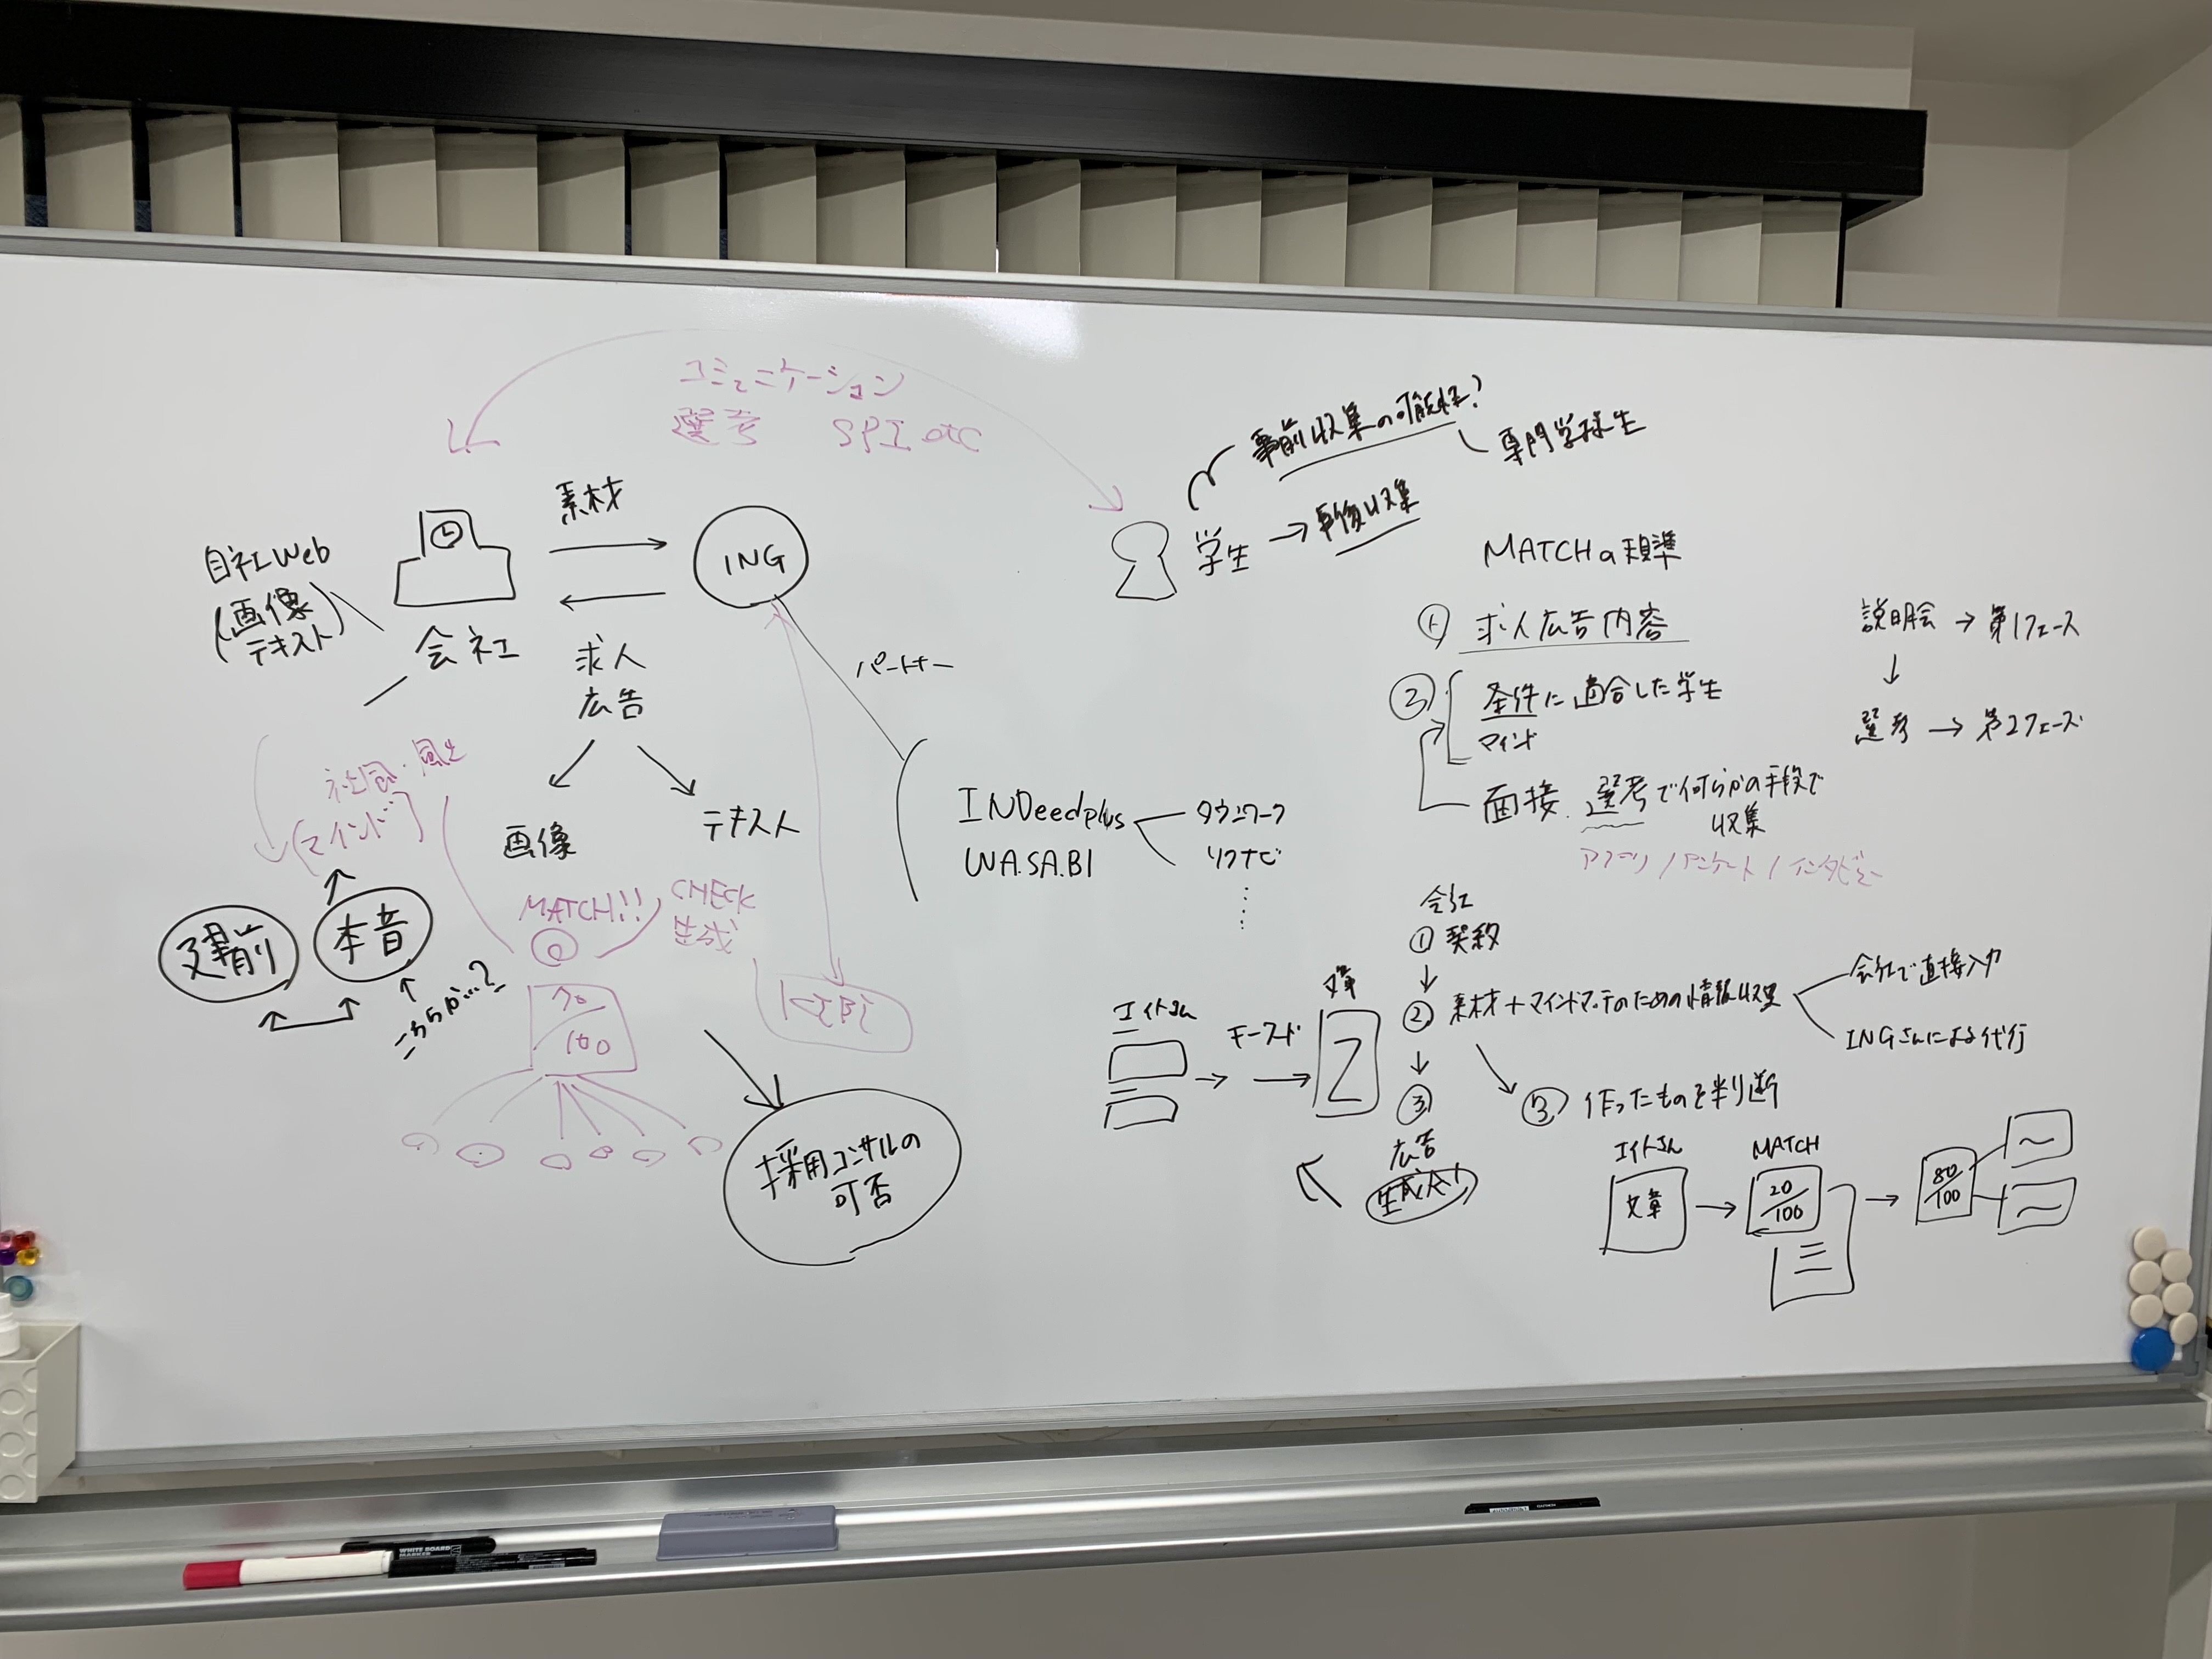 コミュニケーション
選考 SPI etc
事前収集の可能性?
専門学校生
学生 → 事後収集
素材
ING
自社Web
(画像
テキスト)
会社
求人
広告
パートナー
画像
テキスト
社風・風土
(マインド)
建前
本音
こちらが…?
MATCH!!
CHECK
生成
70
100
採用コンサルの
可否
INDeedplus
WA.SA.BI
タウンワーク
リクナビ
MATCHの基準
① 求人広告内容
② 条件に適合した学生
マインド
面接、選考で何らかの手段で
収集
アプリ / アンケート / インタビュー
説明会 → 第1フェーズ
↓
選考 → 第2フェーズ
会社
① 契約
↓
② 素材+マインドマッチのための情報収集
会社で直接入力
INGさんによる代行
↓
③
広告
生成AI
③ 作ったものを判断
エイトさん
文章
エイトさん
文章
MATCH
20
100
80
100